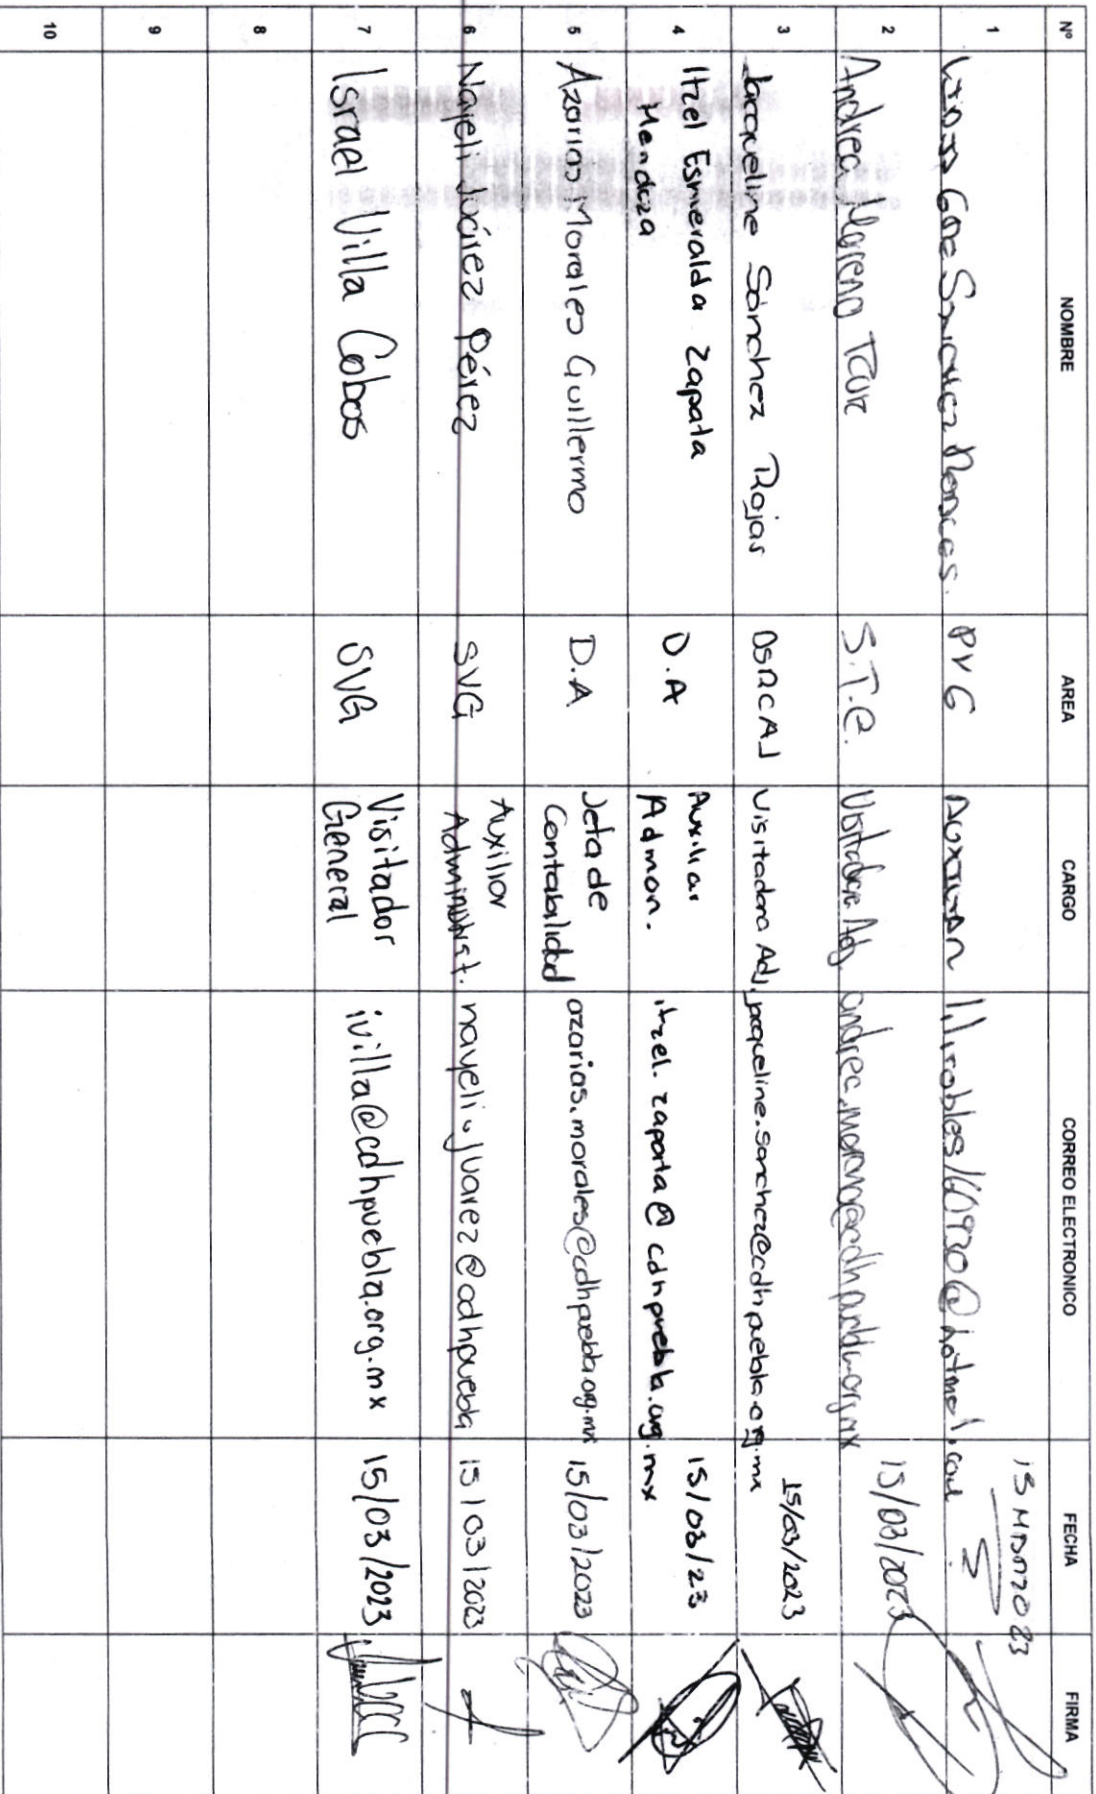 Nº NOMBRE AREA CARGO CORREO ELECTRONICO FECHA FIRMA
1 PVG 15 MARZO 23
2 Andrea Moreno S.T.E. Visitadora Adj. 15/03/2023
3 Jacqueline Sánchez Rojas DSRCAJ Visitadora Adj. jaqueline.sanchez@cdhpuebla.org.mx 15/03/2023
4 Itzel Esmeralda Zapata
Mendoza D.A Auxiliar
Admon. itzel.zapata@cdhpuebla.org.mx 15/03/23
5 Azarias Morales Guillermo D.A Jefa de
Contabilidad azarias.morales@cdhpuebla.org.mx 15/03/2023
6 Nayeli Juárez Pérez SVG Auxiliar
Administ. nayeli.juarez@cdhpuebla 15/03/2023
7 Israel Villa Cobos SVG Visitador
General ivilla@cdhpuebla.org.mx 15/03/2023
8
9
10